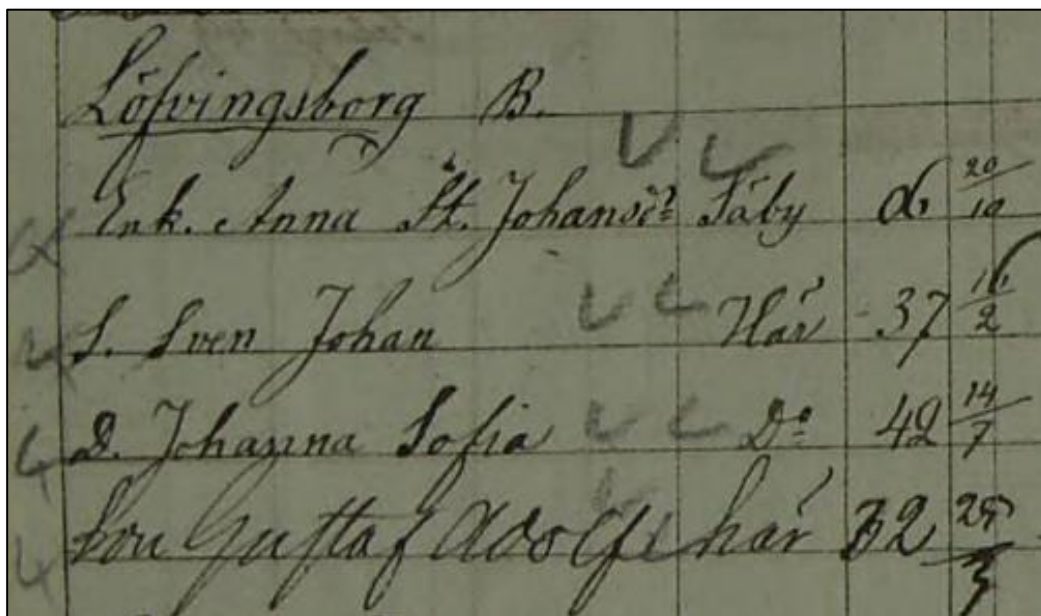 Löfvingsborg B.
Enk. Anna St. Johansdr Säby d. 20/10
S. Sven Johan Här 37 16/2
D. Johanna Sofia Do 42 14/7
Son Gustaf Adolf här 32 25/3